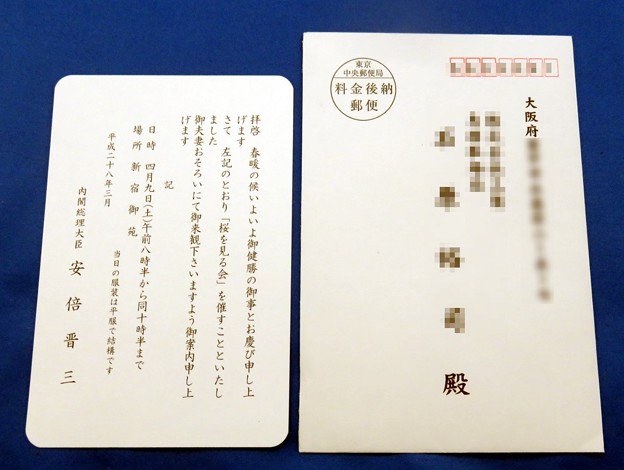 拝啓　春暖の候いよいよ御健勝の御事とお慶び申し上
げます
さて　左記のとおり「桜を見る会」を催すことといたし
ました
御夫妻おそろいにて御来観下さいますよう御案内申し上
げます
記
日時　四月九日(土)午前八時半から同十時半まで
場所　新宿御苑
当日の服装は平服で結構です
平成二十八年三月
内閣総理大臣　安倍晋三
東京
中央郵便局
料金後納
郵便
大阪府
殿